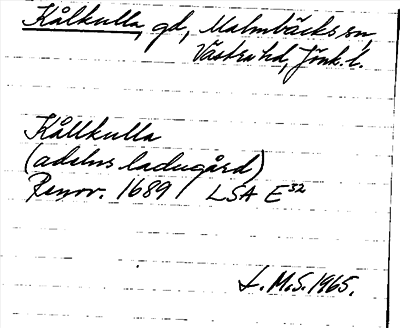 Kålkulla, gd, Malmbäcks sn,
Västra hd, Jönk. l.
Kållkulla
(adelns ladugård)
Renov. 1689 LSA E32
L. M.S. 1965.